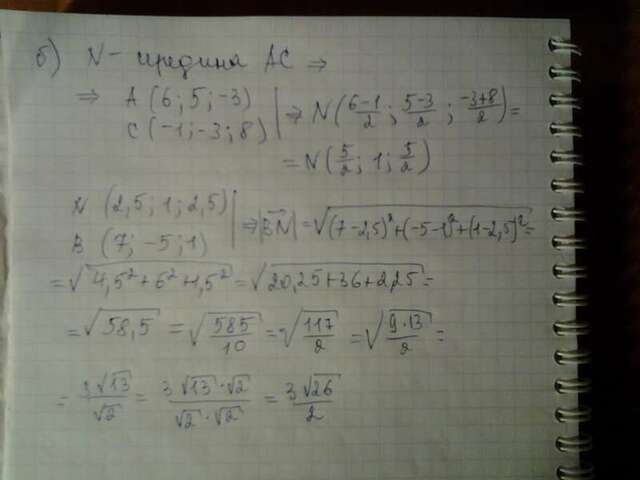 б) N - середина AC ⇒
⇒ A (6; 5; -3) | ⇒ N(\frac{6-1}{2}; \frac{5-3}{2}; \frac{-3+8}{2}) =
C (-1; -3; 8)
= N(\frac{5}{2}; 1; \frac{5}{2})
N (2,5; 1; 2,5) | ⇒ |\vec{BN}| = \sqrt{(7-2,5)^2+(-5-1)^2+(1-2,5)^2} =
B (7; -5; 1)
= \sqrt{4,5^2+6^2+1,5^2} = \sqrt{20,25+36+2,25} =
= \sqrt{58,5} = \sqrt{\frac{585}{10}} = \sqrt{\frac{117}{2}} = \sqrt{\frac{9·13}{2}} =
= \frac{3\sqrt{13}}{\sqrt{2}} = \frac{3\sqrt{13}·\sqrt{2}}{\sqrt{2}·\sqrt{2}} = \frac{3\sqrt{26}}{2}